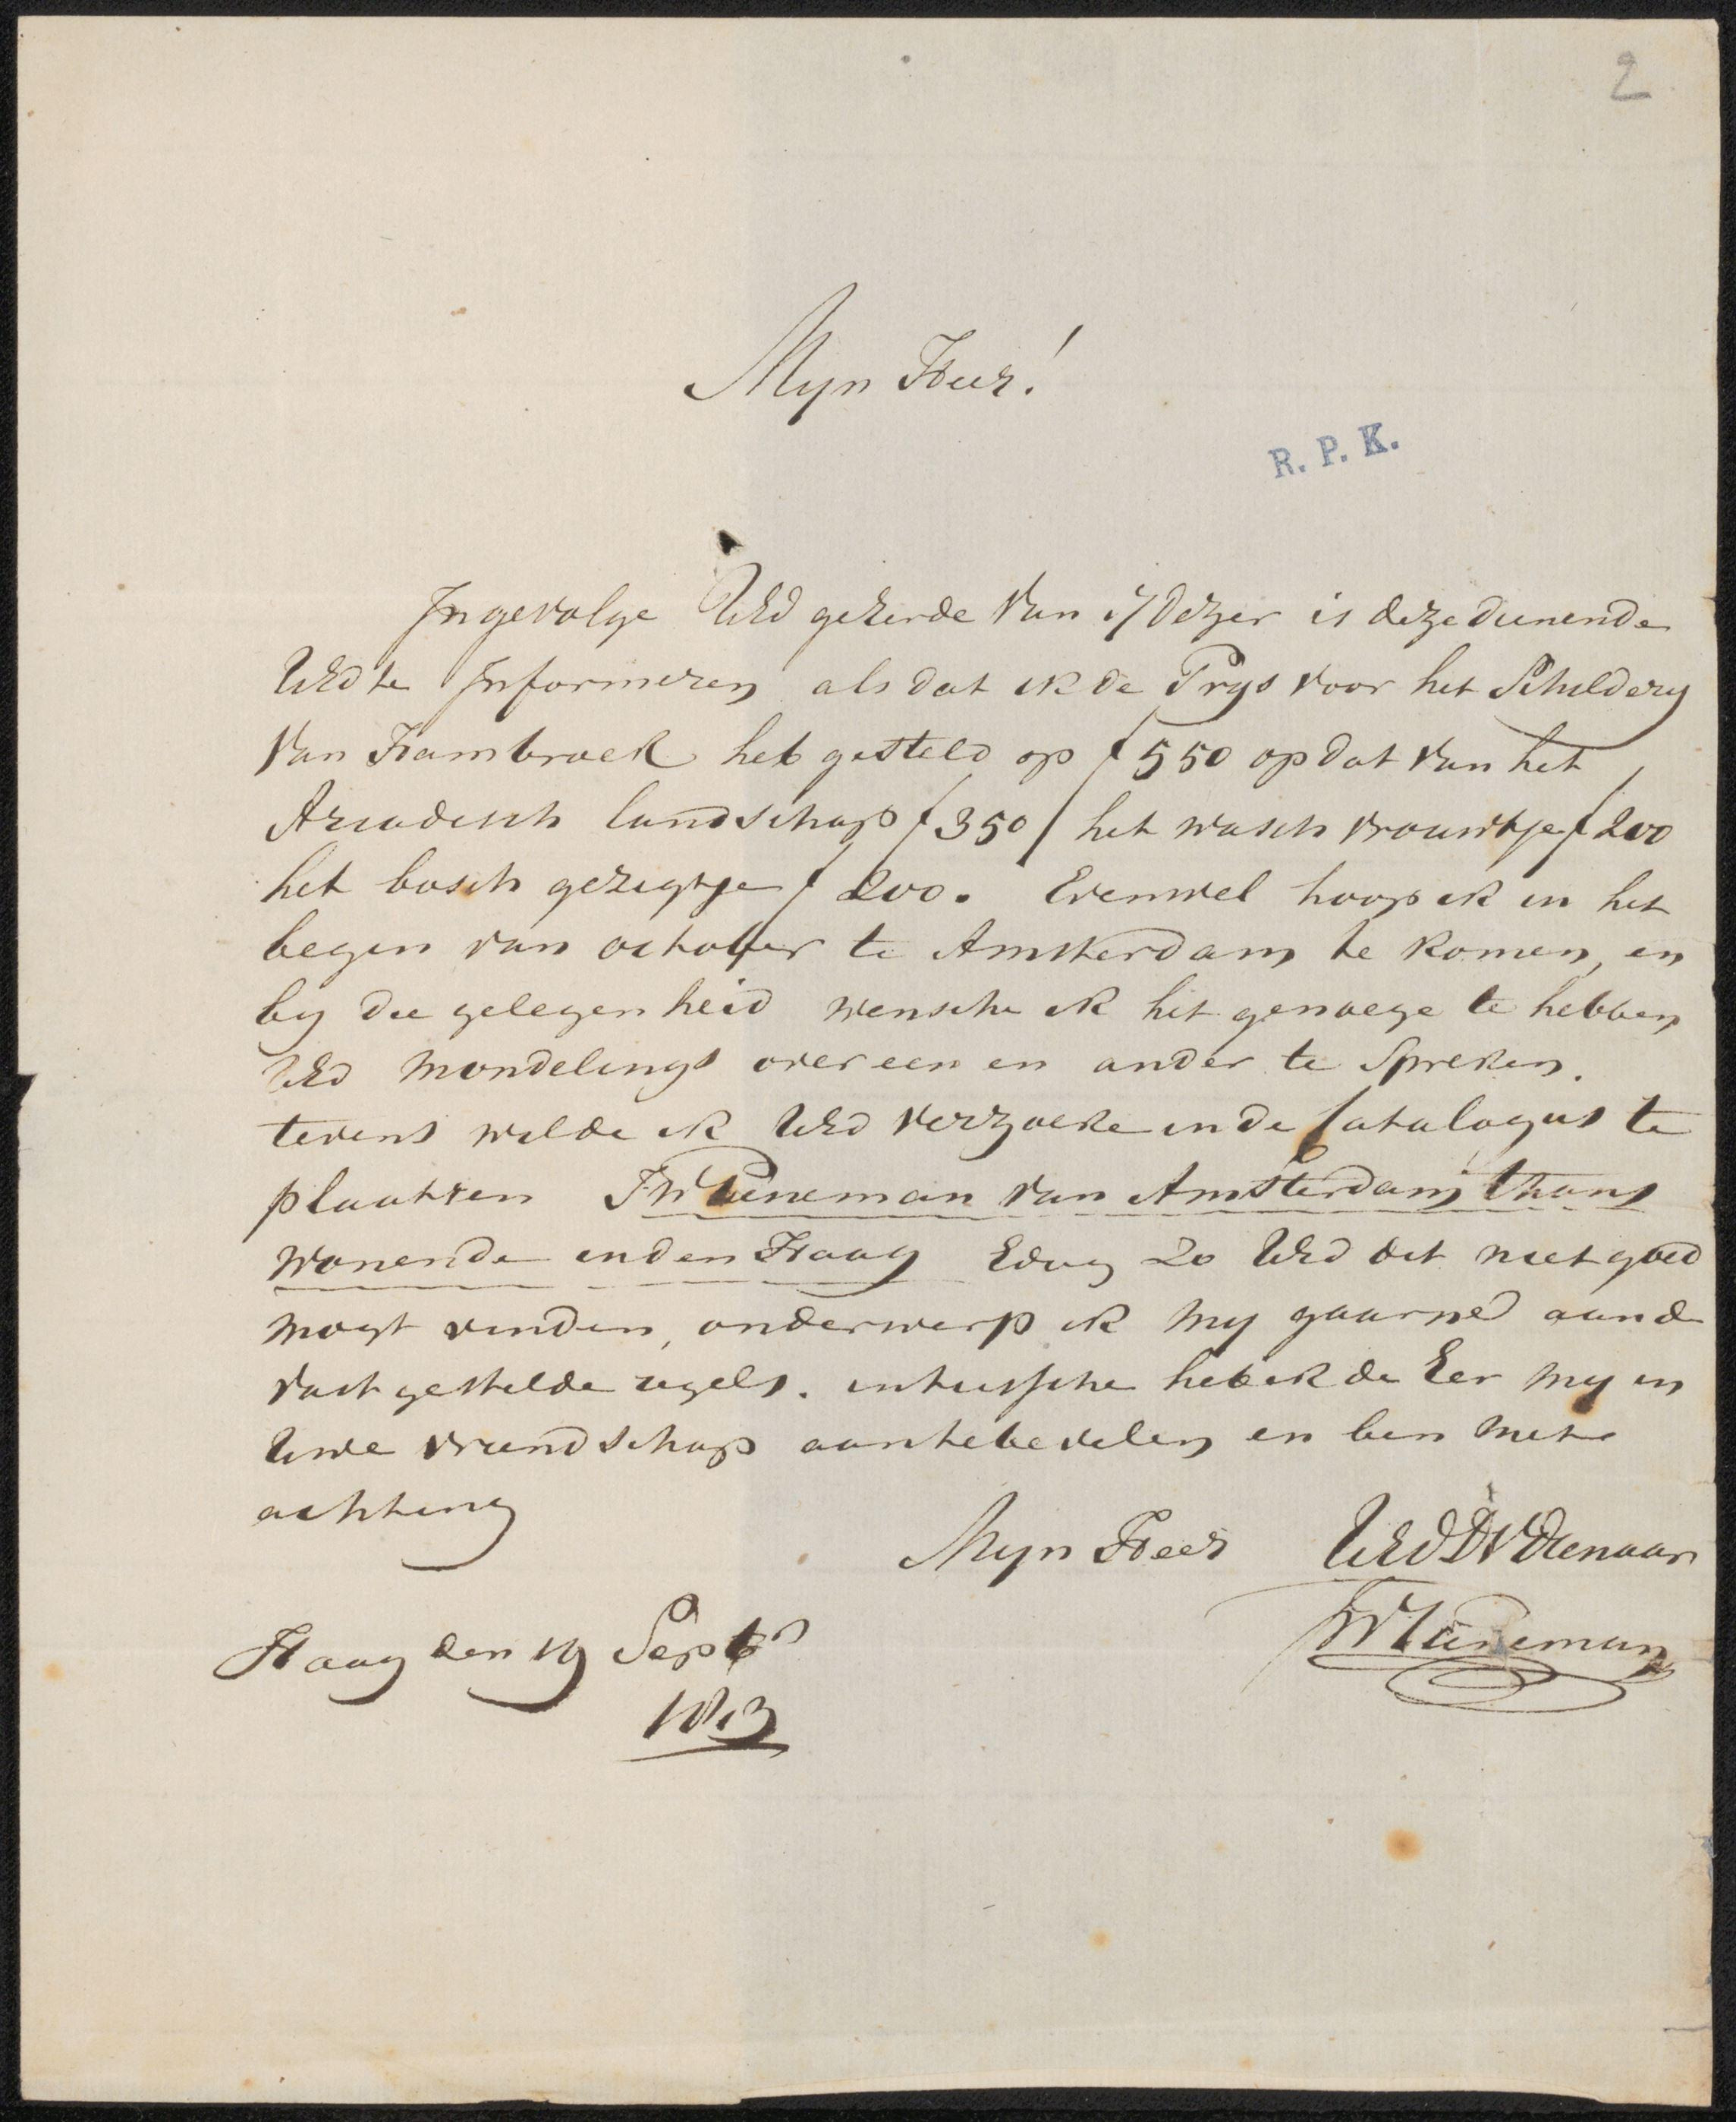 2
Myn Heer!
R. P. K.
Ingevolge UEd geEerde van 17 dezer is deze dienende
UEd te Informeren als dat ik de Prys voor het Schildery
van Hambroek heb gesteld op f 550 op dat van het
Arcadisch landschap f 350 / het wasch vrouwtje f 200
het bosch gezigtje f 200. Evenwel hoop ik in het
begin van october te Amsterdam te komen, en
by die gelegenheid wensche ik het genoege te hebben
UEd mondelings over een en ander te Spreken.
tevens wilde ik UEd verzoeke in de Catalogus te
plaatsen Pieneman van Amsterdam thans
wonende in den Haag Edog Zo UEd dit niet goed
mogt vinden, onderwerp ik my gaarne aan de
vast gestelde regels. intussche heb ik de Eer my in
Uwe vriendschap aantebevelen en ben met
achting
Myn Heer UEd DWDienaar
Pieneman
Haag den 19 Sept